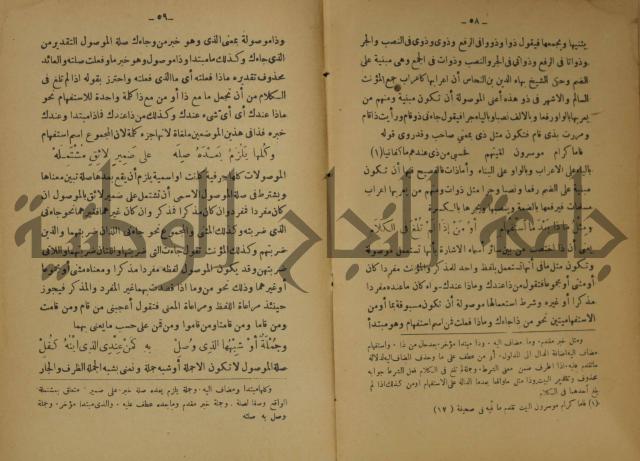 — ٥٨ —
يثنيها ويجمعها فيقول ذوا وذووا في الرفع وذوي وذوي في النصب والجر
وذواتا في الرفع وذواتي في الجر والنصب وذوات في الجمع وهي مبنية على
الضم وحكى الشيخ بهاء الدين بن النحاس أن اعرابها كاعراب جمع المؤنث
السالم والأشهر في ذو هذه أعني الموصولة أن تكون مبنية ومنهم من
يعربها بالواو رفعا وبالالف نصبا وبالياء جرا فيقول جاءني ذو قام ورأيت ذا قام
ومررت بذي قام فتكون مثل ذي بمعنى صاحب وقد روى قوله
فاما كرام موسرون لقيتهم فحسبي من ذي عندهم ما كفانيا (١)
بالياء على الاعراب وبالواو على البناء وأما ذات فالفصيح فيها أن تكون
مبنية على الضم رفعا ونصبا وجرا مثل ذوات ومنهم من يعربها اعراب
مسلمات فيرفعها بالضمة وينصبها ويجرها بالكسرة
ومثل ما ذا بعد ما استفهام أو من إذا لم تلغ في الكلام
يعني أن ذا اختصت من بين سائر أسماء الاشارة بأنها تستعمل موصولة
وتكون مثل ما في أنها تستعمل بلفظ واحد للمذكر والمؤنث مفردا كان
أو مثنى أو مجموعا فتقول من ذا عندك وماذا عندك سواء كان ما عنده مفردا
مذكرا أو غيره وشرط استعمالها موصولة أن تكون مسبوقة بما أو من
الاستفهاميتين نحو من ذا جاءك وماذا فعلت فمن اسم استفهام وهو مبتدأ
(١) فاما كرام موسرون البيت تقدم ما فيه في صحيفة (١٧)
— ٥٩ —
وذا موصولة بمعنى الذي وهو خبر من وجاءك صلة الموصول التقدير من
الذي جاءك وكذلك ما مبتدأ وذا موصول وهو خبر ما وفعلت صلته والعائد
محذوف تقديره ماذا فعلته أي ما الذي فعلته واحترز بقوله اذا لم تلغ في
الكلام من أن تجعل ما مع ذا أو من مع ذا كلمة واحدة للاستفهام نحو
ماذا عندك أي أي شيء عندك وكذلك من ذا عندك فماذا مبتدأ وعندك
خبره فذا في هذين الموضعين ملغاة لانها جزء كلمة لان المجموع اسم استفهام
وكلها يلزم بعده صله على ضمير لائق مشتمله
الموصولات كلها حرفية كانت أو اسمية يلزم أن يقع بعدها صلة تبين معناها
ويشترط في صلة الموصول الاسمي أن تشتمل على ضمير لائق بالموصول ان
كان مفردا فمفرد وان كان مذكرا فمذكر وان كان غيرهما فغيرهما نحو جاءني
الذي ضربته وكذلك المثنى والمجموع نحو جاءني اللذان ضربتهما والذين
ضربتهم وكذلك المؤنث تقول جاءت التي ضربتها واللتان ضربتهما واللاتي
ضربتهن وقد يكون الموصول لفظه مفردا مذكرا ومعناه مثنى أو مجموعا
أو غيرهما وذلك نحو من وما اذا قصدت بهما غير المفرد والمذكر فيجوز
حينئذ مراعاة اللفظ ومراعاة المعنى فتقول أعجبني من قام ومن قامت
ومن قاما ومن قامتا ومن قاموا ومن قمن على حسب ما يعنى بهما
وجملة أو شبهها الذي وصل به كمن عندي الذي ابنه كفل
صلة الموصول لا تكون الا جملة أو شبه جملة ونعني بشبه الجملة الظرف والجار
وكلها مبتدأ ومضاف اليه
وصل به صلته
جامعة النجاح الوطنية